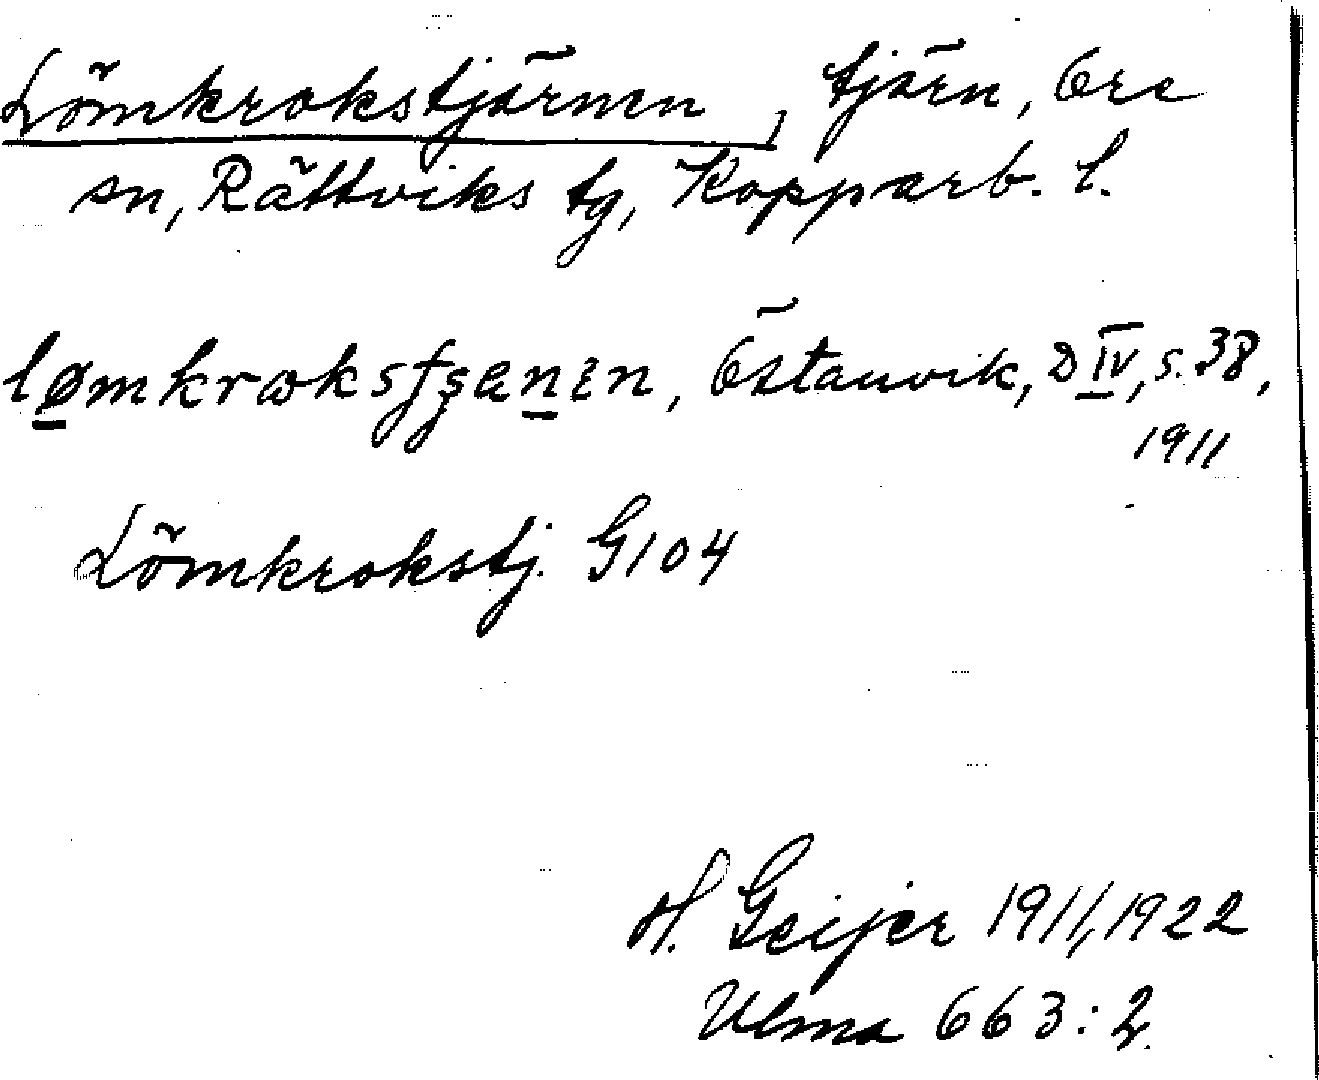 Lömkrokstjärnen, tjärn, Ore
sn, Rättviks tg, Kopparb. l.
lømkrωksʃʂænɛn, Östanvik, D IV, s. 38,
1911
Lömkrokstj. G104
H. Geijer 1911, 1922
Ulma 663:2.